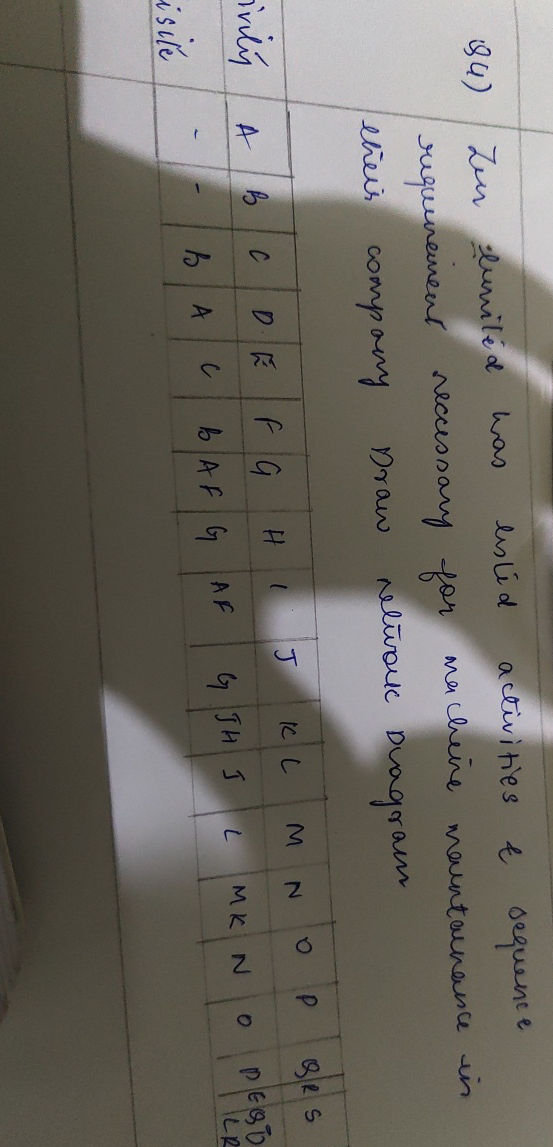 Q4) Zen limited has listed activities & sequence
requirement necessary for macheine maintainance in
their company Draw network Diagram
ivity A B C D E F G H I J K L M N O P Q R S
isite - - B A C B AF G AF G JH J L MK N O P